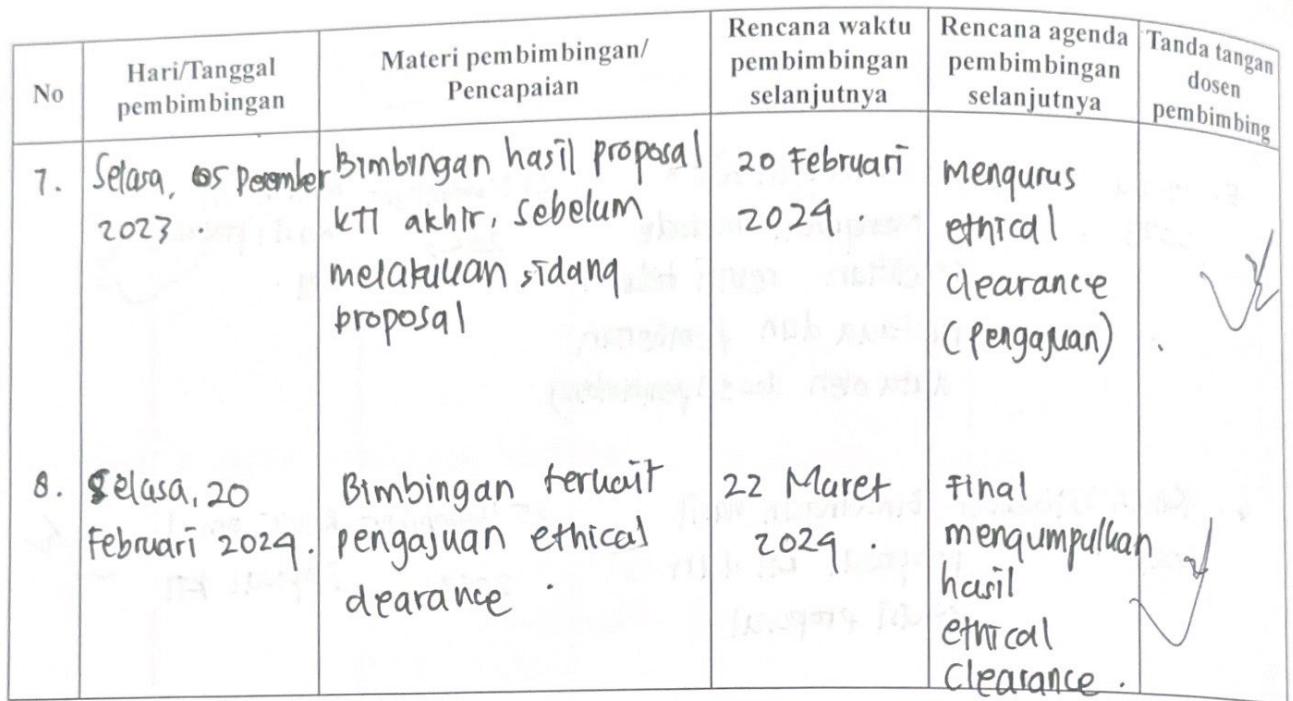 No
Hari/Tanggal
pembimbingan
Materi pembimbingan/
Pencapaian
Rencana waktu
pembimbingan
selanjutnya
Rencana agenda
pembimbingan
selanjutnya
Tanda tangan
dosen
pembimbing
7.
Selasa, 05 Desember
2023
Bimbingan hasil proposal
KTI akhir, sebelum
melakukan sidang
proposal
20 Februari
2024.
mengurus
ethical
clearance
(pengajuan).
8.
Selasa, 20
Februari 2024.
Bimbingan terkait
pengajuan ethical
clearance.
22 Maret
2024.
Final
mengumpulkan
hasil
ethical
Clearance.